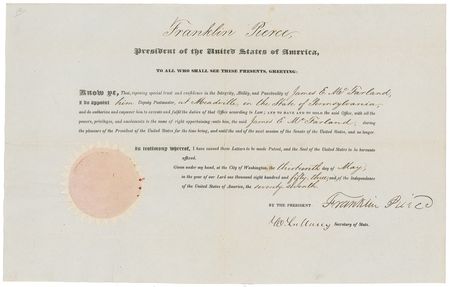 Franklin Pierce,
President of the United States of America,
TO ALL WHO SHALL SEE THESE PRESENTS, GREETING:
Know ye, That, reposing special trust and confidence in the Integrity, Ability, and Punctuality of James E. McFarland,
I do appoint him Deputy Postmaster, at Meadville, in the State of Pennsylvania;
and do authorize and empower him to execute and fulfil the duties of that Office according to Law; AND TO HAVE AND TO HOLD the said Office, with all the
powers, privileges, and emoluments to the same of right appertaining unto him, the said James E. McFarland, during
the pleasure of the President of the United States for the time being, and until the end of the next session of the Senate of the United States, and no longer.
In testimony whereof, I have caused these Letters to be made Patent, and the Seal of the United States to be hereunto
affixed.
Given under my hand, at the City of Washington, the thirteenth day of May,
in the year of our Lord one thousand eight hundred and fifty three; and of the Independence
of the United States of America, the seventy seventh.
BY THE PRESIDENT Franklin Pierce
W. L. Marcy Secretary of State.